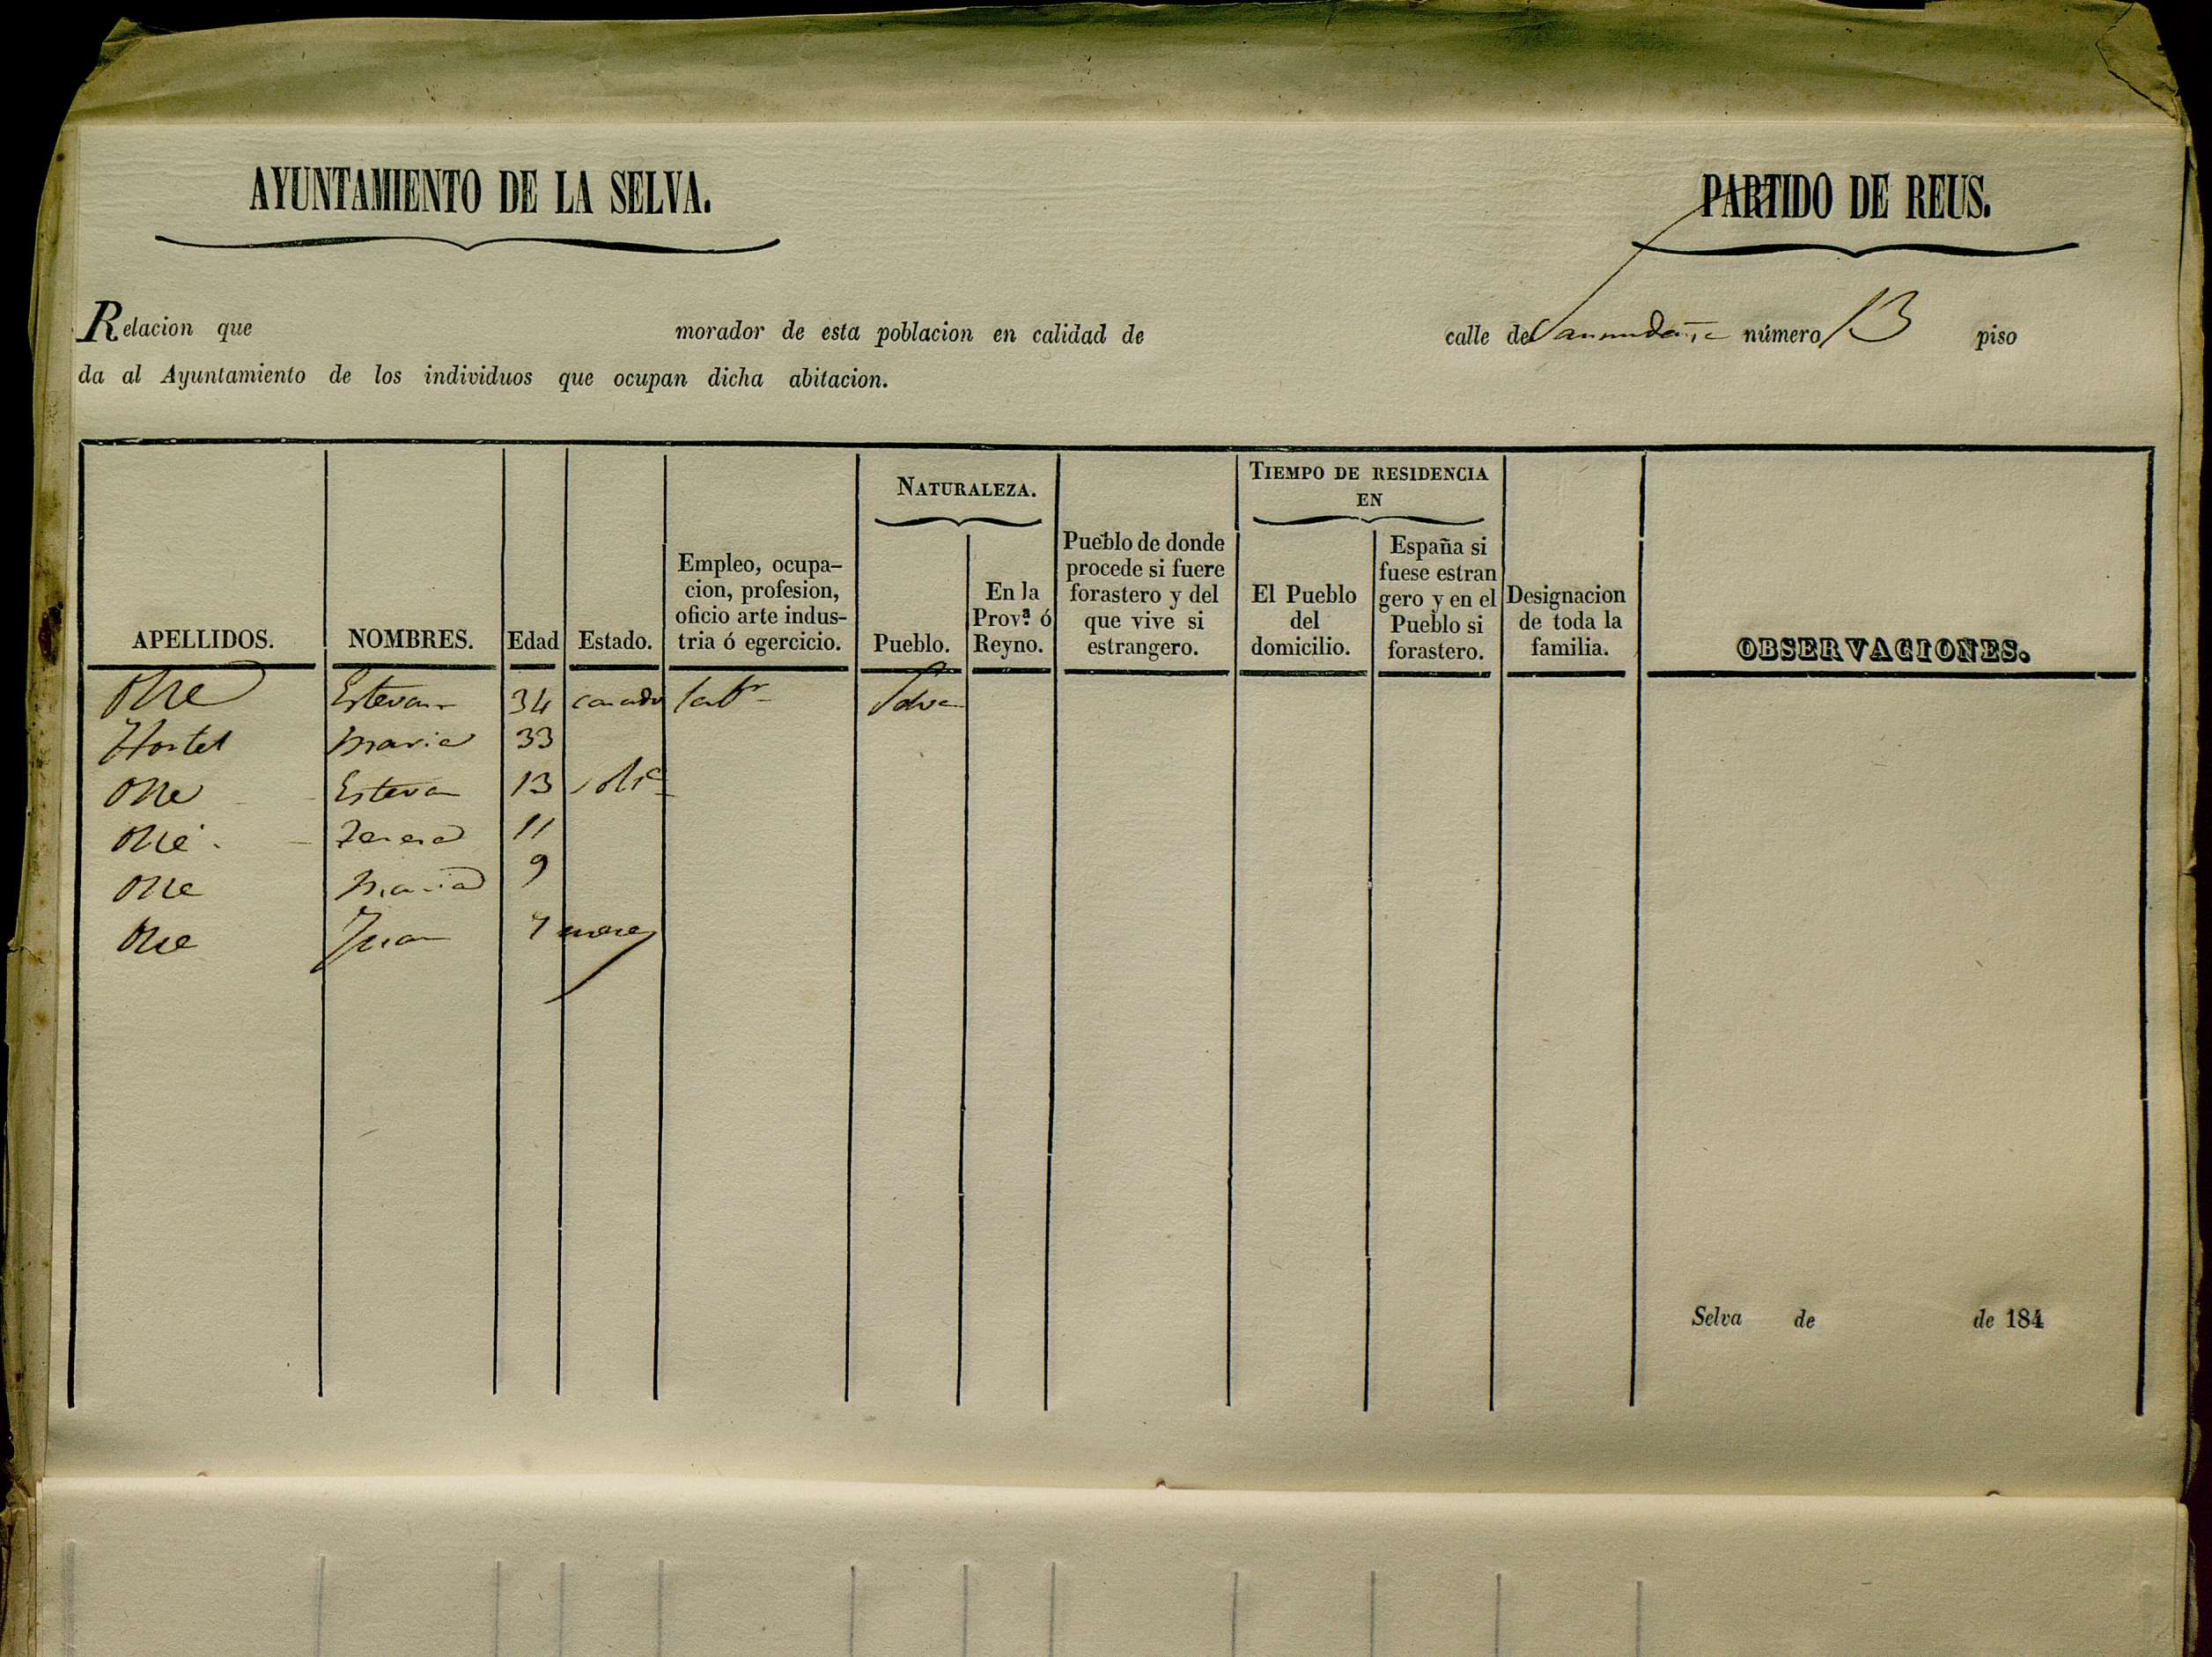 AYUNTAMIENTO DE LA SELVA.
PARTIDO DE REUS.
Relacion que morador de esta poblacion en calidad de calle de número 13 piso
da al Ayuntamiento de los individuos que ocupan dicha abitacion.
NATURALEZA.
TIEMPO DE RESIDENCIA
EN
APELLIDOS.
NOMBRES.
Edad
Estado.
Empleo, ocupa-
cion, profesion,
oficio arte indus-
tria ó egercicio.
Pueblo.
En la
Provª ó
Reyno.
Pueblo de donde
procede si fuere
forastero y del
que vive si
estrangero.
El Pueblo
del
domicilio.
España si
fuese estran
gero y en el
Pueblo si
forastero.
Designacion
de toda la
familia.
OBSERVACIONES.
Olle Estevan 34 casado labr Selva
Hortet Maria 33
Olle Estevan 13 solt
Olle Teresa 11
Olle Maria 9
Olle Juan 7 meses
Selva de de 184